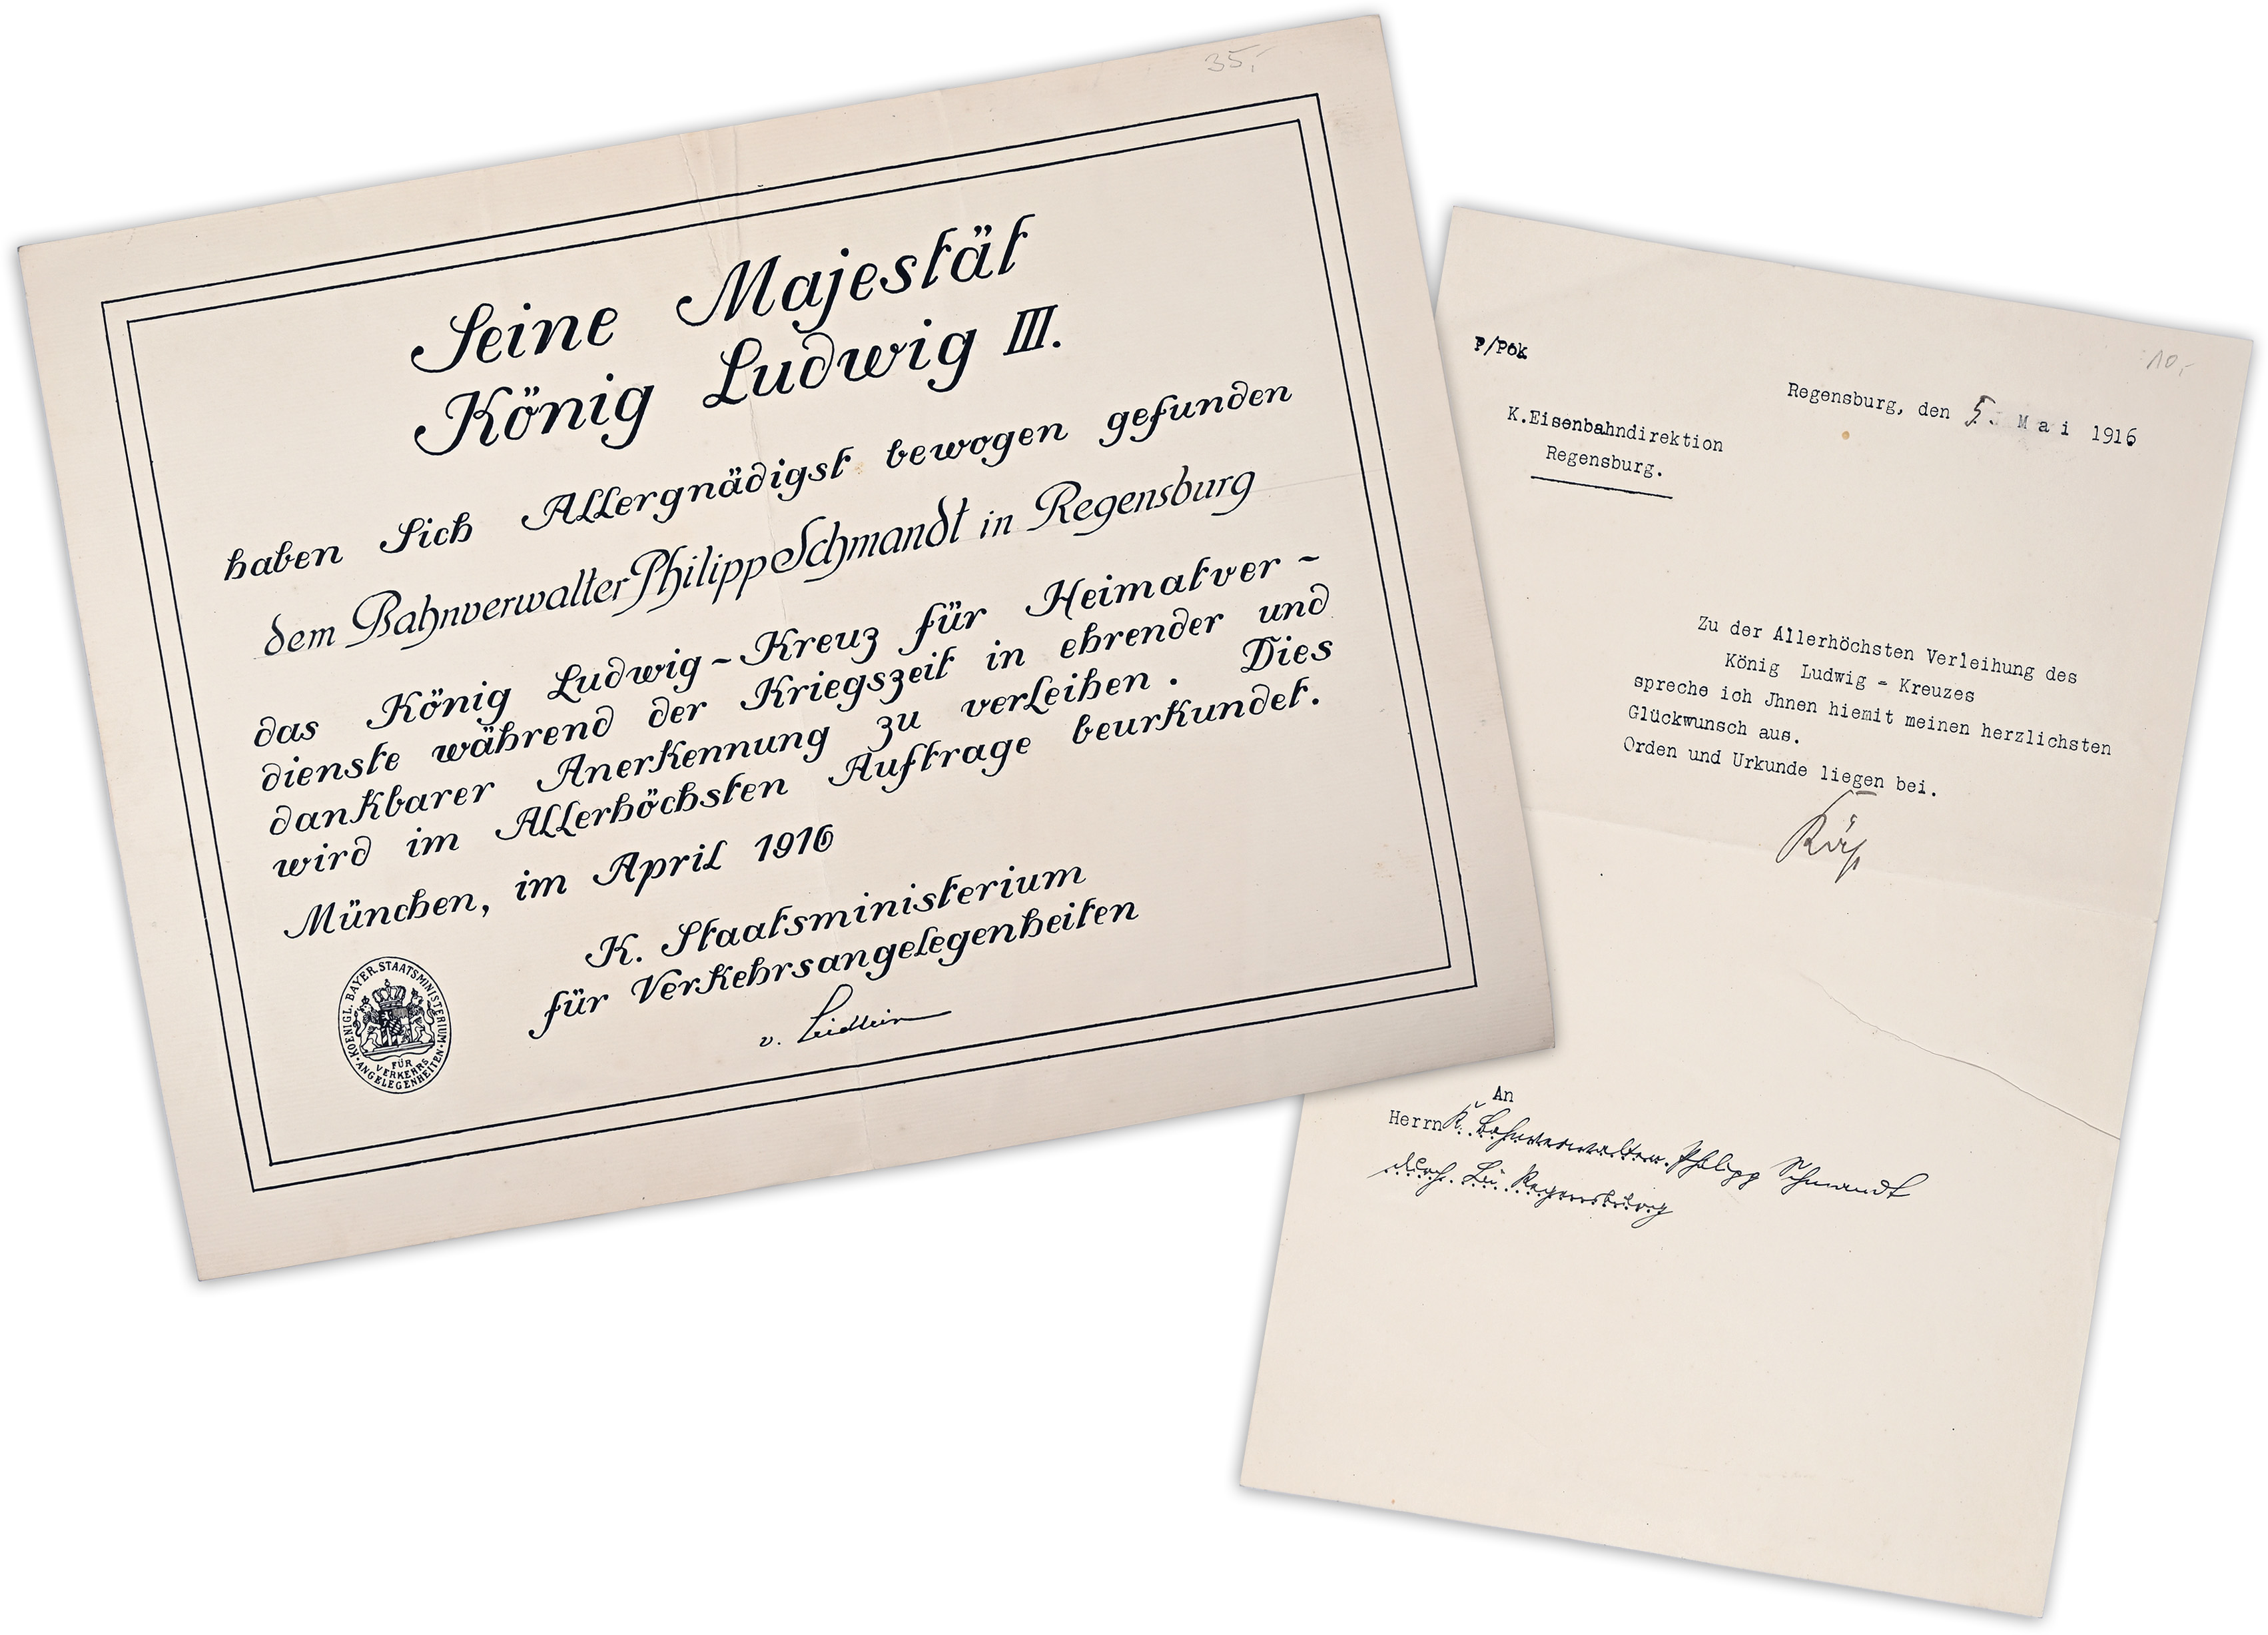 35,-
Seine Majestät
König Ludwig III.
haben Sich Allergnädigst bewogen gefunden
dem Bahnverwalter Philipp Schmandt in Regensburg
das König Ludwig-Kreuz für Heimatver-
dienste während der Kriegszeit in ehrender und
dankbarer Anerkennung zu verleihen. Dies
wird im Allerhöchsten Auftrage beurkundet.
München, im April 1916
K. Staatsministerium
für Verkehrsangelegenheiten
v. Seidlein
KOENIGL. BAYER. STAATSMINISTERIUM
FÜR
VERKEHRS
ANGELEGENHEITEN
10,-
P/Pök
Regensburg, den 5. Mai 1916
K.Eisenbahndirektion
Regensburg.
Zu der Allerhöchsten Verleihung des
König Ludwig - Kreuzes
spreche ich Jhnen hiemit meinen herzlichsten
Glückwunsch aus.
Orden und Urkunde liegen bei.
An
Herrn K. Bahnverwalter Philipp Schmandt
durch Regensburg